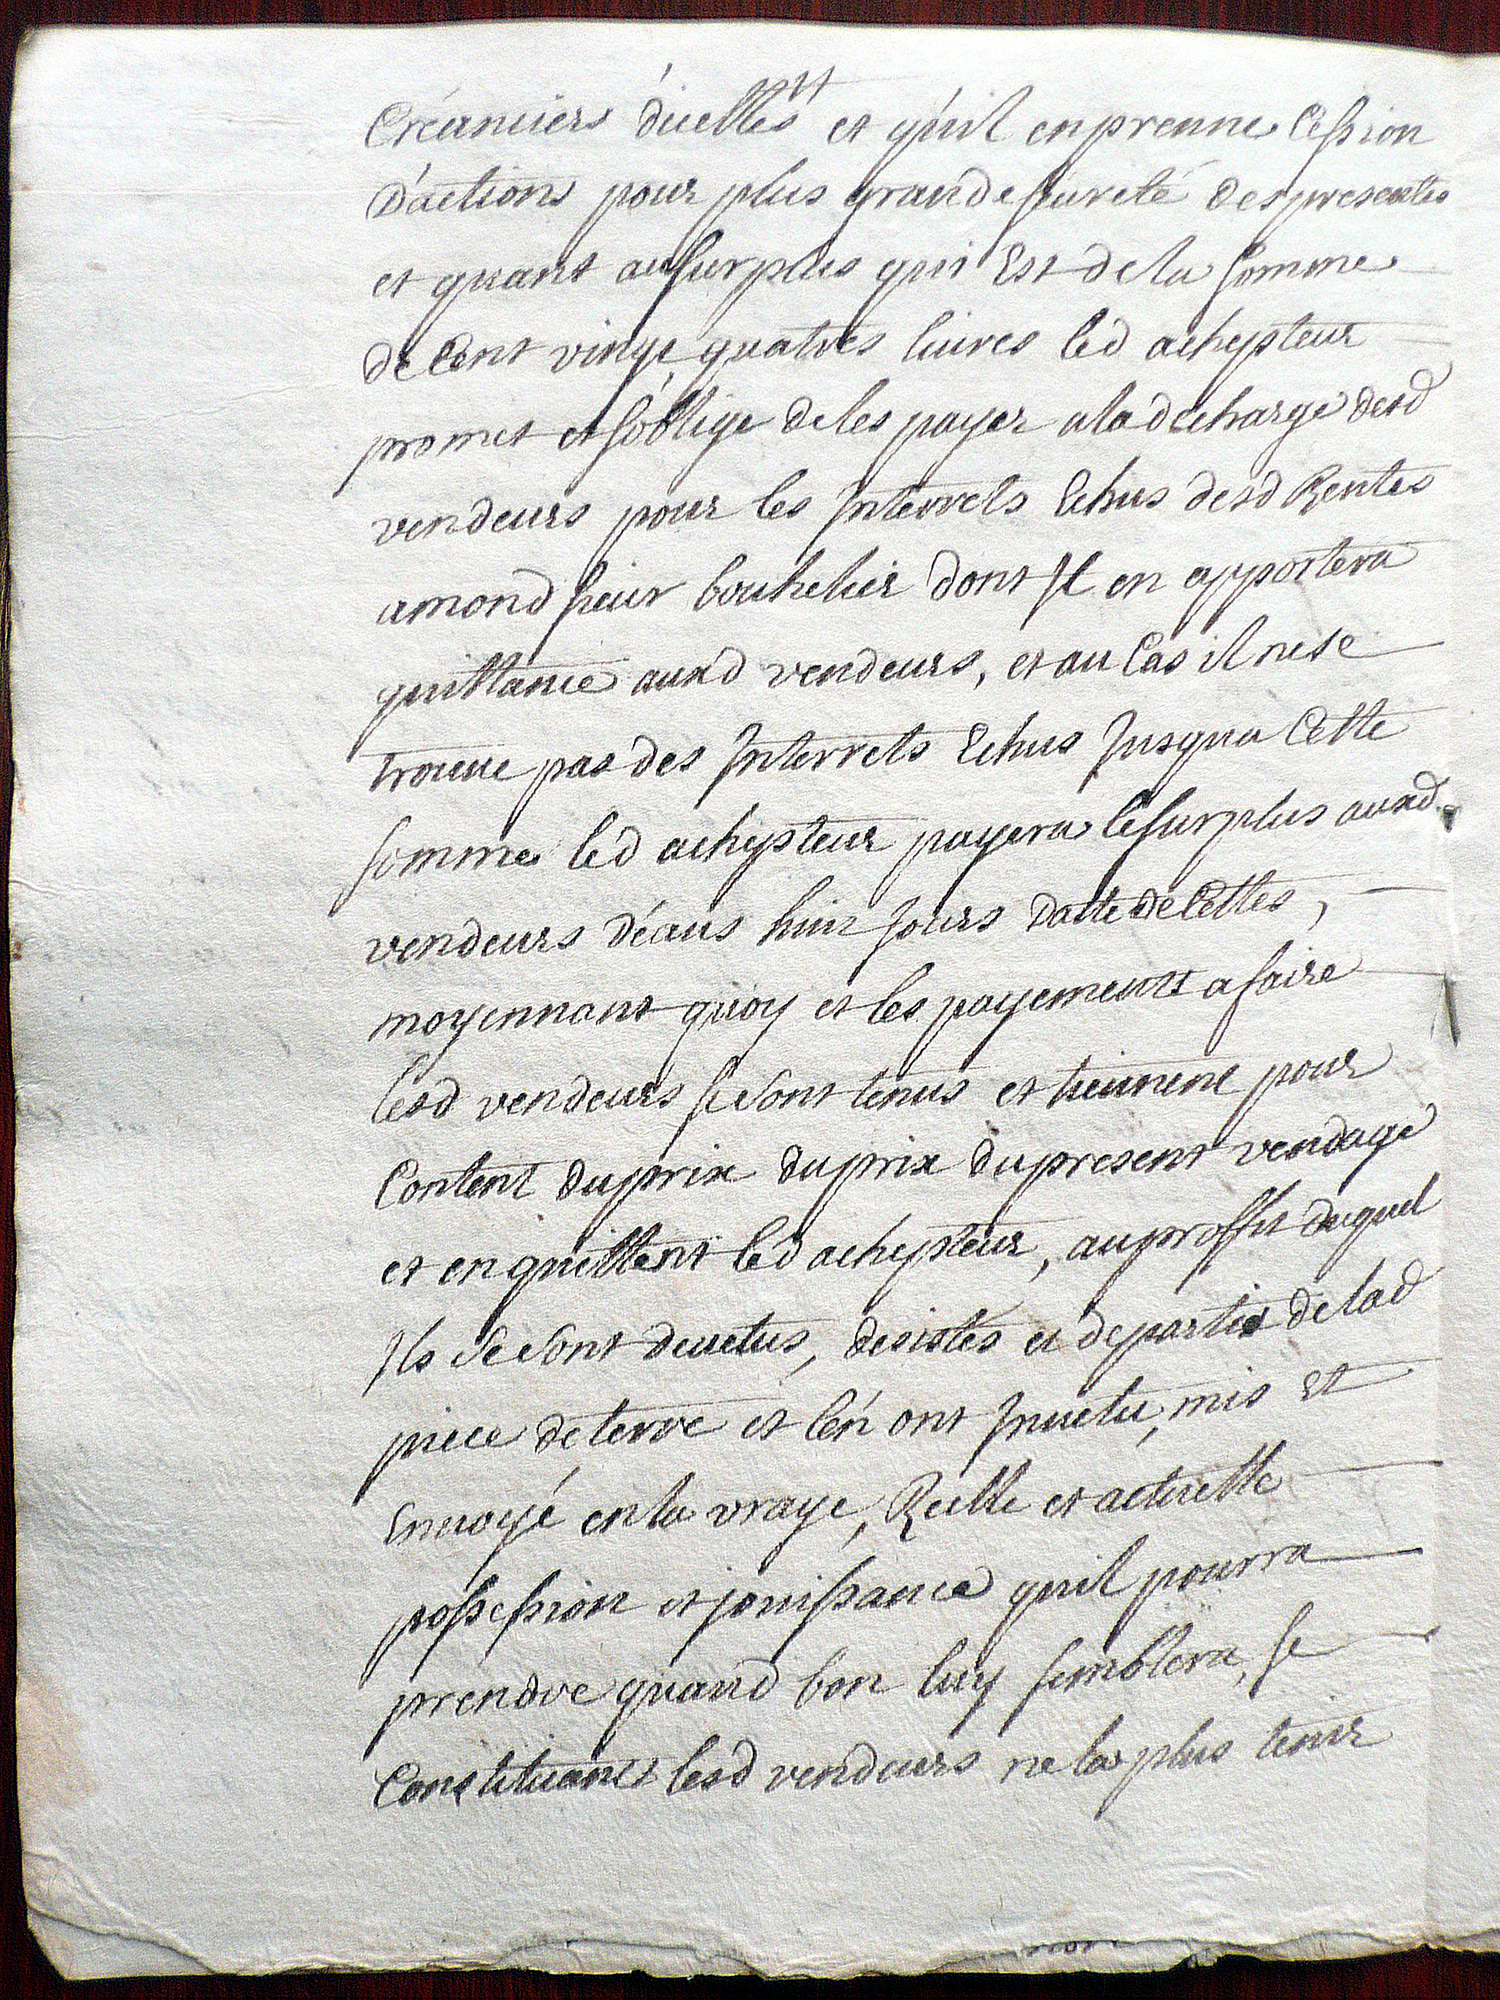 Créanciers d'icelles et qu'il en prenne Cession
D'actions pour plus grande sureté des presentes
et quant au surplus qui Est de la somme
de Cent vingt quatres livres led achepteur
promet et s'oblige de les payer a la decharge desd
vendeurs pour les Interrets Echus desd Rentes
amond sieur bouhelier dont Il en apportera
quittance auxd vendeurs, et au Cas il ne se
trouve pas des Interrets Echus Jusqua Cette
somme led achepteur payera le surplus auxd
vendeurs d'éans huit Jours datte de Cettes,
moyennant quoy et les payements a faire
lesd vendeurs se sont tenus et tiennent pour
Content du prix du prix du present vendage
et en quittent led achepteur, au proffit duquel
Ils se sont devetus, desistés et departis de lad
piece de terre et l'en ont Invetu, mis Et
Envoyé en la vraye, Réelle et actuelle
possession et jouissance qu'il pourra
prendre quand bon luy semblera, se
Constituants lesd vendeurs ne la plus tenir